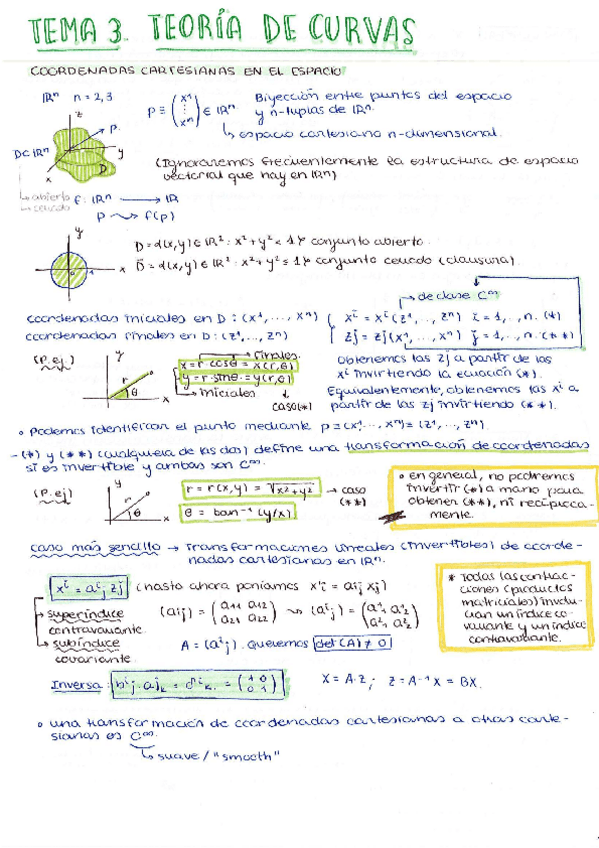 TEMA 3. TEORÍA DE CURVAS
COORDENADAS CARTESIANAS EN EL ESPACIO
ℝⁿ n = 2,3
p ≡ (x¹ ⋮ xⁿ) ∈ ℝⁿ
Biyección entre puntos del espacio
y n-tuplas de ℝⁿ.
↳ espacio cartesiano n-dimensional.
z
p.
y
x
D
D⊂ℝⁿ
(Ignoraremos frecuentemente la estructura de espacio
vectorial que hay en ℝⁿ)
↳ abierto
↳ cerrado
f: ℝⁿ → ℝ
p ⇝ f(p)
y
x
1
D = {(x,y) ∈ ℝ² : x²+y² < 1} conjunto abierto.
D̄ = {(x,y) ∈ ℝ² : x²+y² ≤ 1} conjunto cerrado (clausura).
→ de clase C∞
coordenadas iniciales en D : (x¹, ..., xⁿ)
coordenadas finales en D : (z¹, ..., zⁿ)
xⁱ = xⁱ(z¹, ..., zⁿ) i = 1, ..., n. (*)
zj = zj(x¹, ..., xⁿ) j = 1, ..., n. (**)
(P.ej.)
y
r
θ
x
→ finales.
x = r·cosθ = x(r,θ)
y = r·senθ = y(r,θ)
→ iniciales
caso (*)
Obtenemos las zj a partir de las
xⁱ invirtiendo la ecuación (*).
Equivalentemente, obtenemos las xⁱ a
partir de las zj invirtiendo (**).
• Podemos identificar el punto mediante p = (x¹, ..., xⁿ) = (z¹, ..., zⁿ)
- (*) y (**) (cualquiera de las dos) define una transformación de coordenadas
si es invertible y ambas son C∞.
(P.ej)
y
r
θ
x
r = r(x,y) = √x²+y²
θ = tan⁻¹(y/x)
→ caso
(**)
• en general, no podremos
invertir (*) a mano para
obtener (**), ni recíproca-
mente.
caso más sencillo → Transformaciones lineales (invertibles) de coorde-
nadas cartesianas en ℝⁿ.
xⁱ = aⁱj zj
(hasta ahora poníamos x'i = aij xj)
→ superíndice
contravariante.
→ subíndice
covariante.
(aij) = (a11 a12 a21 a22) ⇝ (aⁱj) = (a¹1 a¹2 a²1 a²2)
A = (aⁱj). Queremos det(A) ≠ 0
* Todas las contrac-
ciones (productos
matriciales) involu-
cran un índice co-
variante y un índice
contravariante.
Inversa: bⁱj · aʲk = δⁱk = (1 0 0 1)
X = A·Z ; Z = A⁻¹X = BX.
• una transformación de coordenadas cartesianas a otras carte-
sianas es C∞.
↳ suave / "smooth"